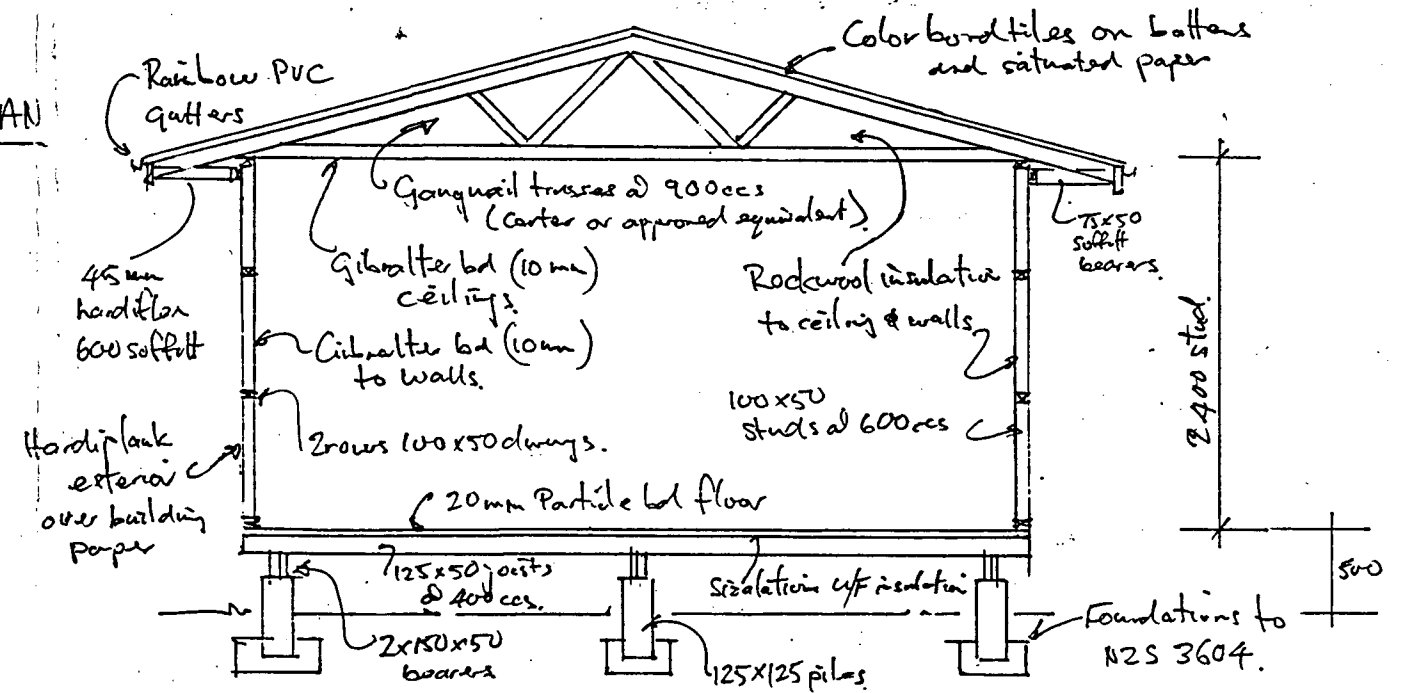 Colorbond tiles on battens
and satuated paper
Rainbow PVC
gutters
AN
Gangnail trusses @ 900ccs
(Carter or approved equivalent).
75x50
soffitt
bearers.
45mm
hardiflex
600 soffitt
Gibralter bd (10mm)
ceilings.
Rockwool insulation
to ceiling & walls
Gibralter bd (10mm)
to walls.
2400 stud.
100x50
studs @ 600ccs
2 rows 100x50 dwangs.
Hardiplank
exterior
over building
paper
20mm Particle bd floor
125x50 joists
@ 400ccs.
Sizalation U/F insulation
500
2x150x50
bearers
125x125 piles.
Foundations to
NZS 3604.